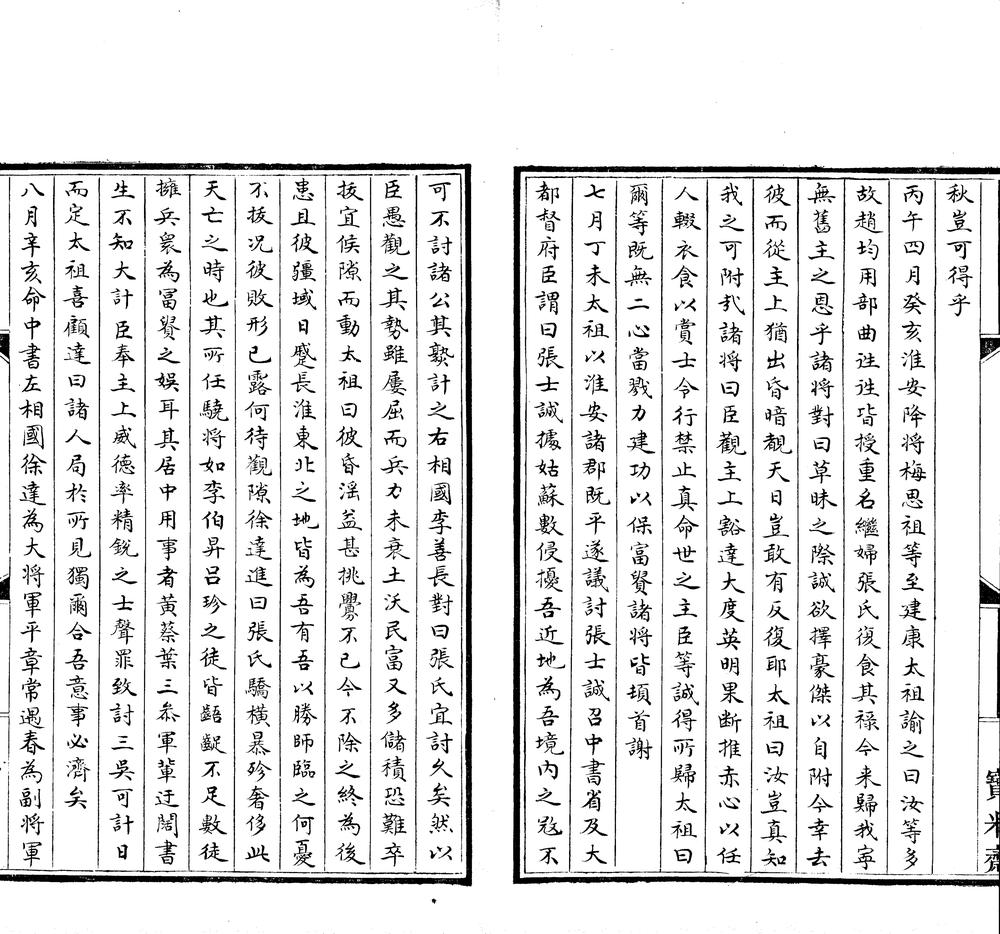 秋豈可得乎
丙午四月癸亥淮安降将梅思祖等至建康太祖諭之曰汝等多
故趙均用部曲徃徃皆授重名繼婦張氏復食其禄今来歸我寕
無舊主之恩乎諸将對曰草昧之際誠欲擇豪傑以自附今幸去
彼而從主上猶出昏暗覩天日豈敢有反復耶太祖曰汝豈真知
我之可附㢤諸将曰臣觀主上豁達大度英明果断推赤心以任
人輟衣食以賞士令行禁止真命世之主臣等誠得所歸太祖曰
爾等既無二心當戮力建功以保富貴諸将皆頓首謝
七月丁未太祖以淮安諸郡既平遂議討張士誠召中書省及大
都督府臣謂曰張士誠據姑蘇數侵擾吾近地為吾境内之冦不
可不討諸公其熟計之右相國李善長對曰張氏宜討久矣然以
臣愚觀之其勢雖屢屈而兵力未衰土沃民富又多儲積恐難卒
拔宜候隙而動太祖曰彼昏滛益甚挑釁不已今不除之終為後
患且彼疆域日蹙長淮東北之地皆為吾有吾以勝師臨之何憂
不拔况彼敗形已露何待觀隙徐達進曰張氏驕横暴殄奢侈此
天亡之時也其所任驍将如李伯昇吕珍之徒皆齷齪不足數徒
擁兵衆為冨貴之娱耳其居中用事者黄蔡葉三叅軍輩迂闊書
生不知大計臣奉主上威德率精鋭之士聲罪致討三吳可計日
而定太祖喜顧達曰諸人局於所見獨爾合吾意事必濟矣
八月辛亥命中書左相國徐達為大将軍平章常遇春為副将軍
寶米齋